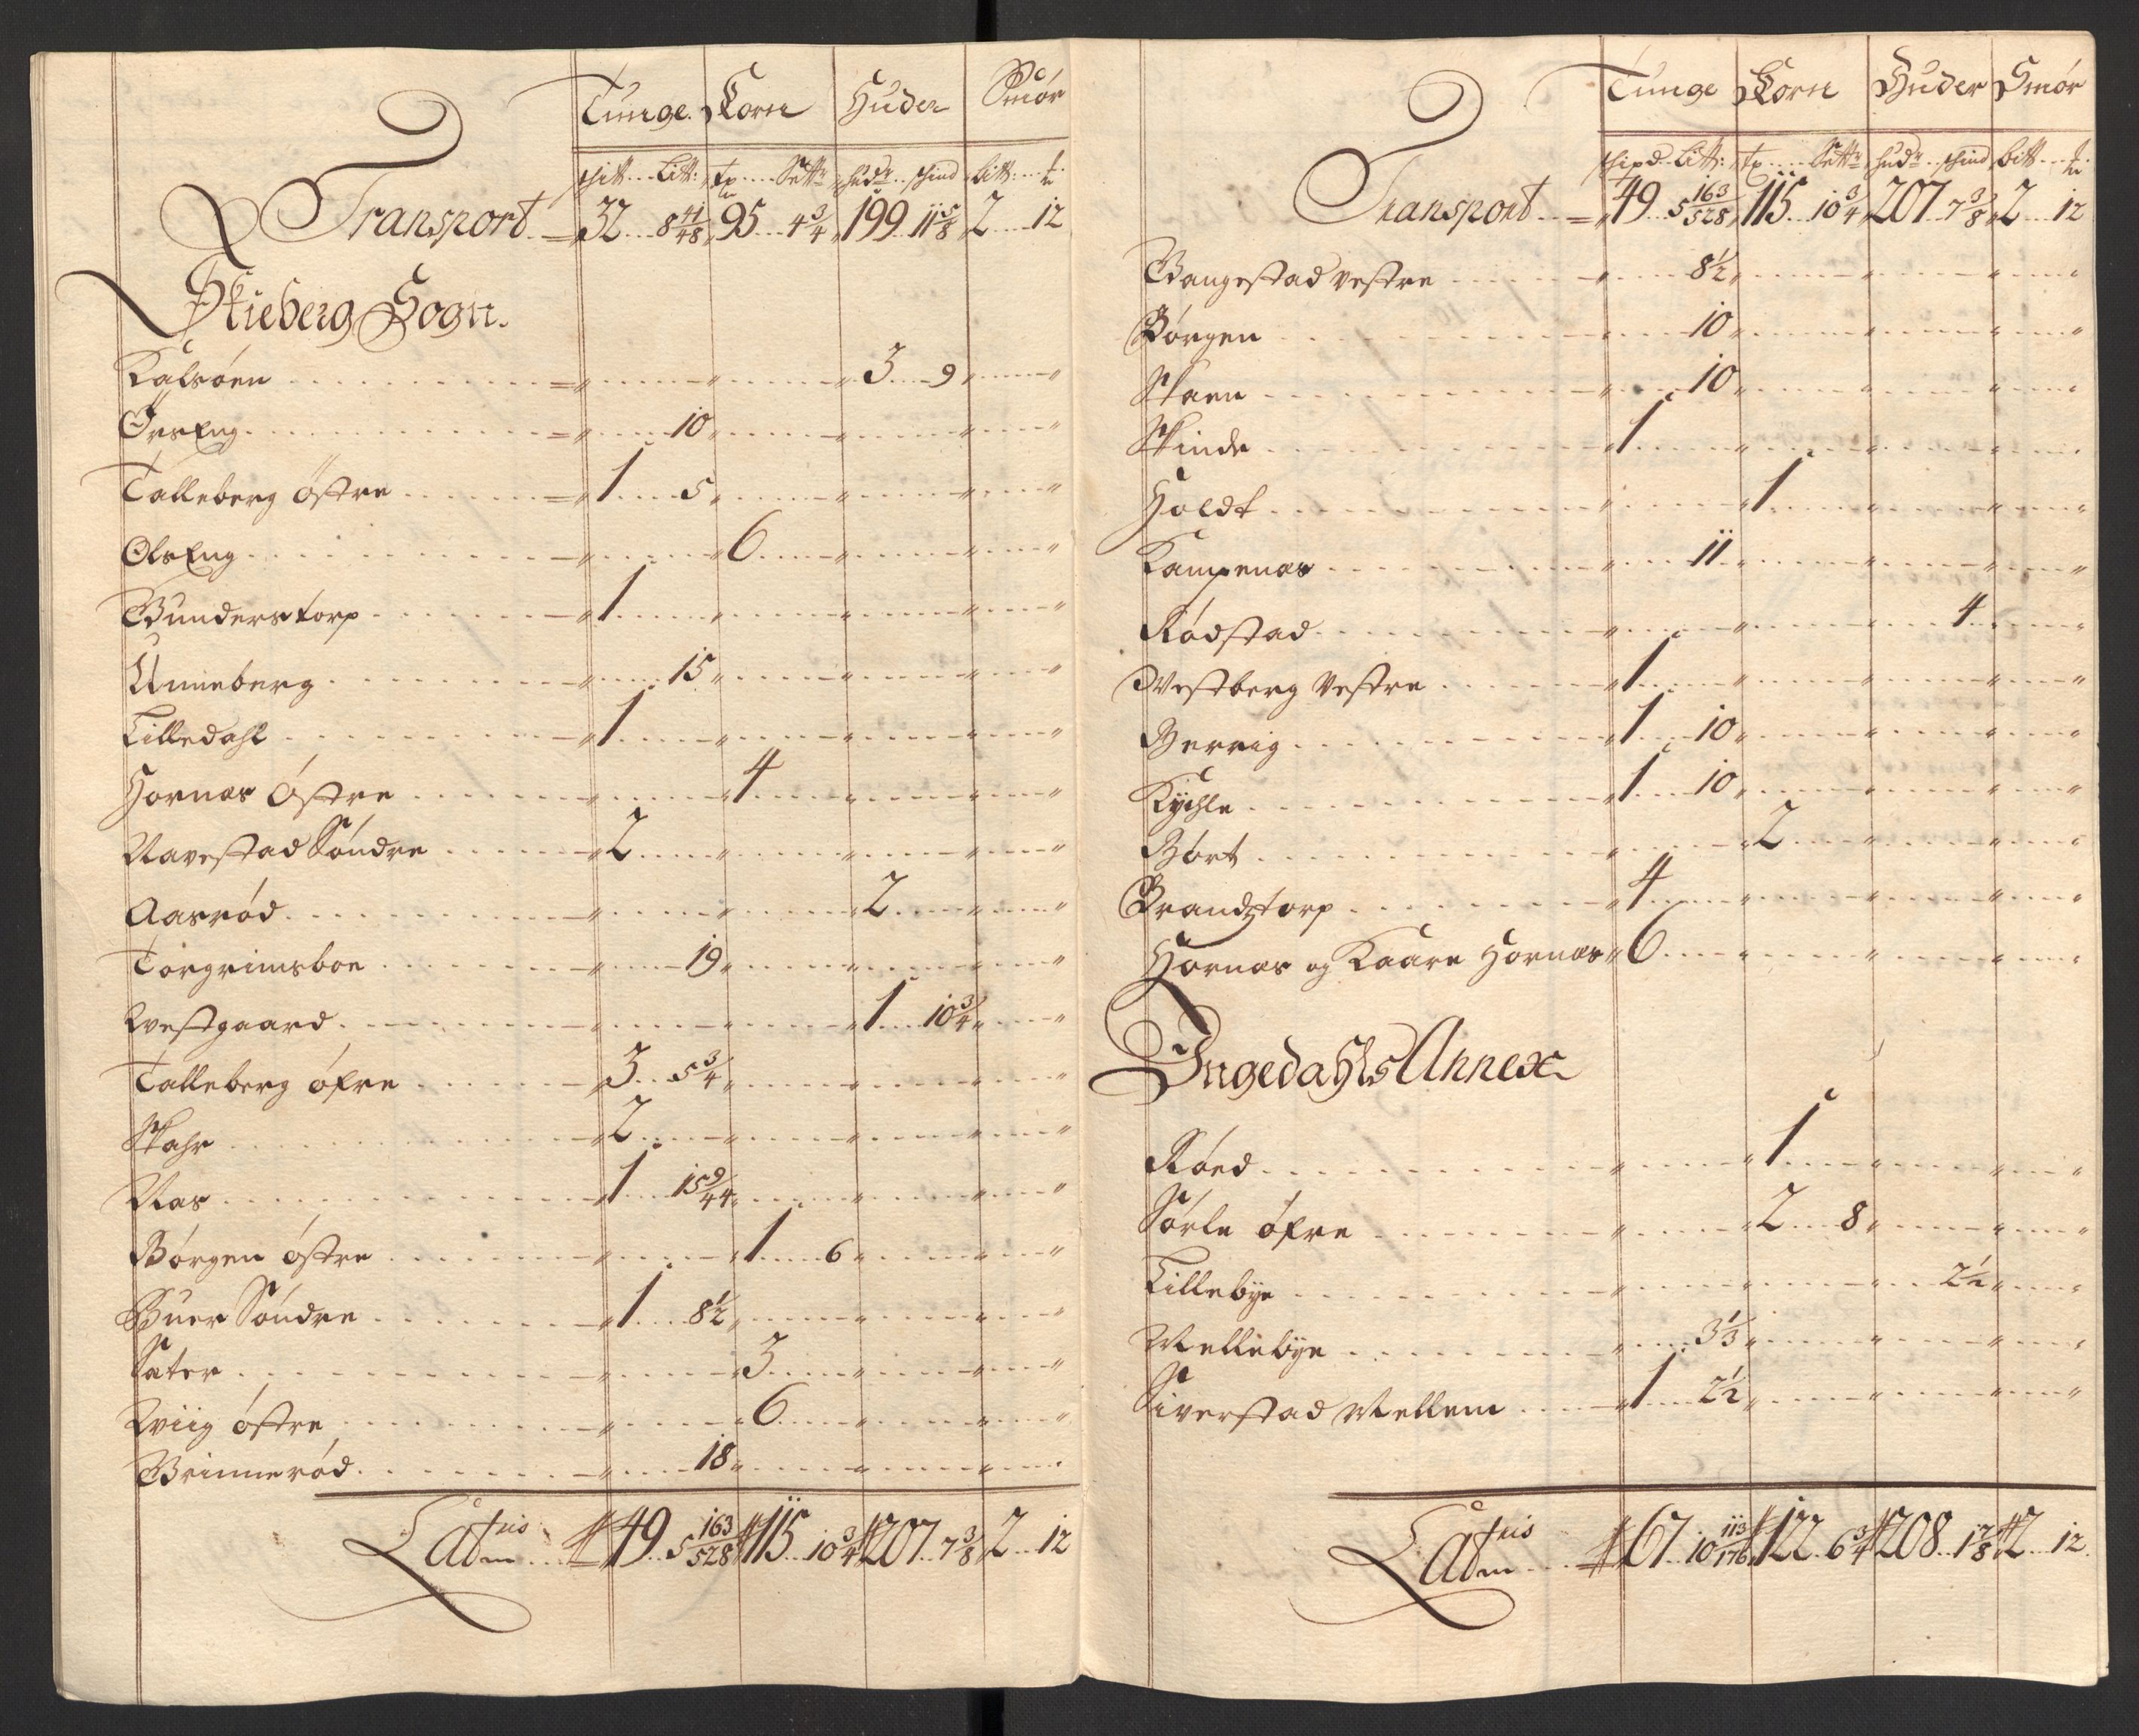 Tunge. Korn Huder Smør
sch℔ Litt: tø Sett: hudr skind bitt: ℔
Transport 32 8 41/48 95 4 3/4 199 11 5/8 2 12
Skieberg Sogn.
Kalsøen 3 9
ØrsEng 10
Talleberg østre 1 5
OlsEng 6
Gunderstorp 1
Unneberg 15
Lilledahl 1
Hornes Østre 4
Navestad Søndre 2
Aasrød 2
Torgrimsboe 19
Westgaard 1 10 3/4
Talleberg øfre 3 5 3/4
Skahr 2
Næs 1 15 9/44
Børgen østre 1 6
Buer Søndre 1 8 1/2
Sæter 3
Wiig østre 6
Brinnerød 18
Latus 49 5 163/528 115 10 3/4 207 7 3/8 2 12
Tunge Korn Huder Smør
skipd Litt: tø Sett: hudr skind bitt ℔
Transport 49 5 163/528 115 10 3/4 207 7 3/8 2 12
Bangestad vestre 8 1/2
Børgen 10
Skaen 10
Skinde 1
Holdt 1
Kampenæs 11
Rødstad 4
Westberg Vestre 1
Berrig 1 10
Kychle 1 10
Bört 2
Brandztorp 4
Hornæs og Kaare Hornæs 6
Ingedahls Annex
Røed 1
Sørle øfre 2 8
Lillebye 2 1/2
Mellebye 3 1/3
Siverstad Mellem 1 2 1/2
Latus 67 10 113/176 122 6 3/4 208 1 7/8 2 12